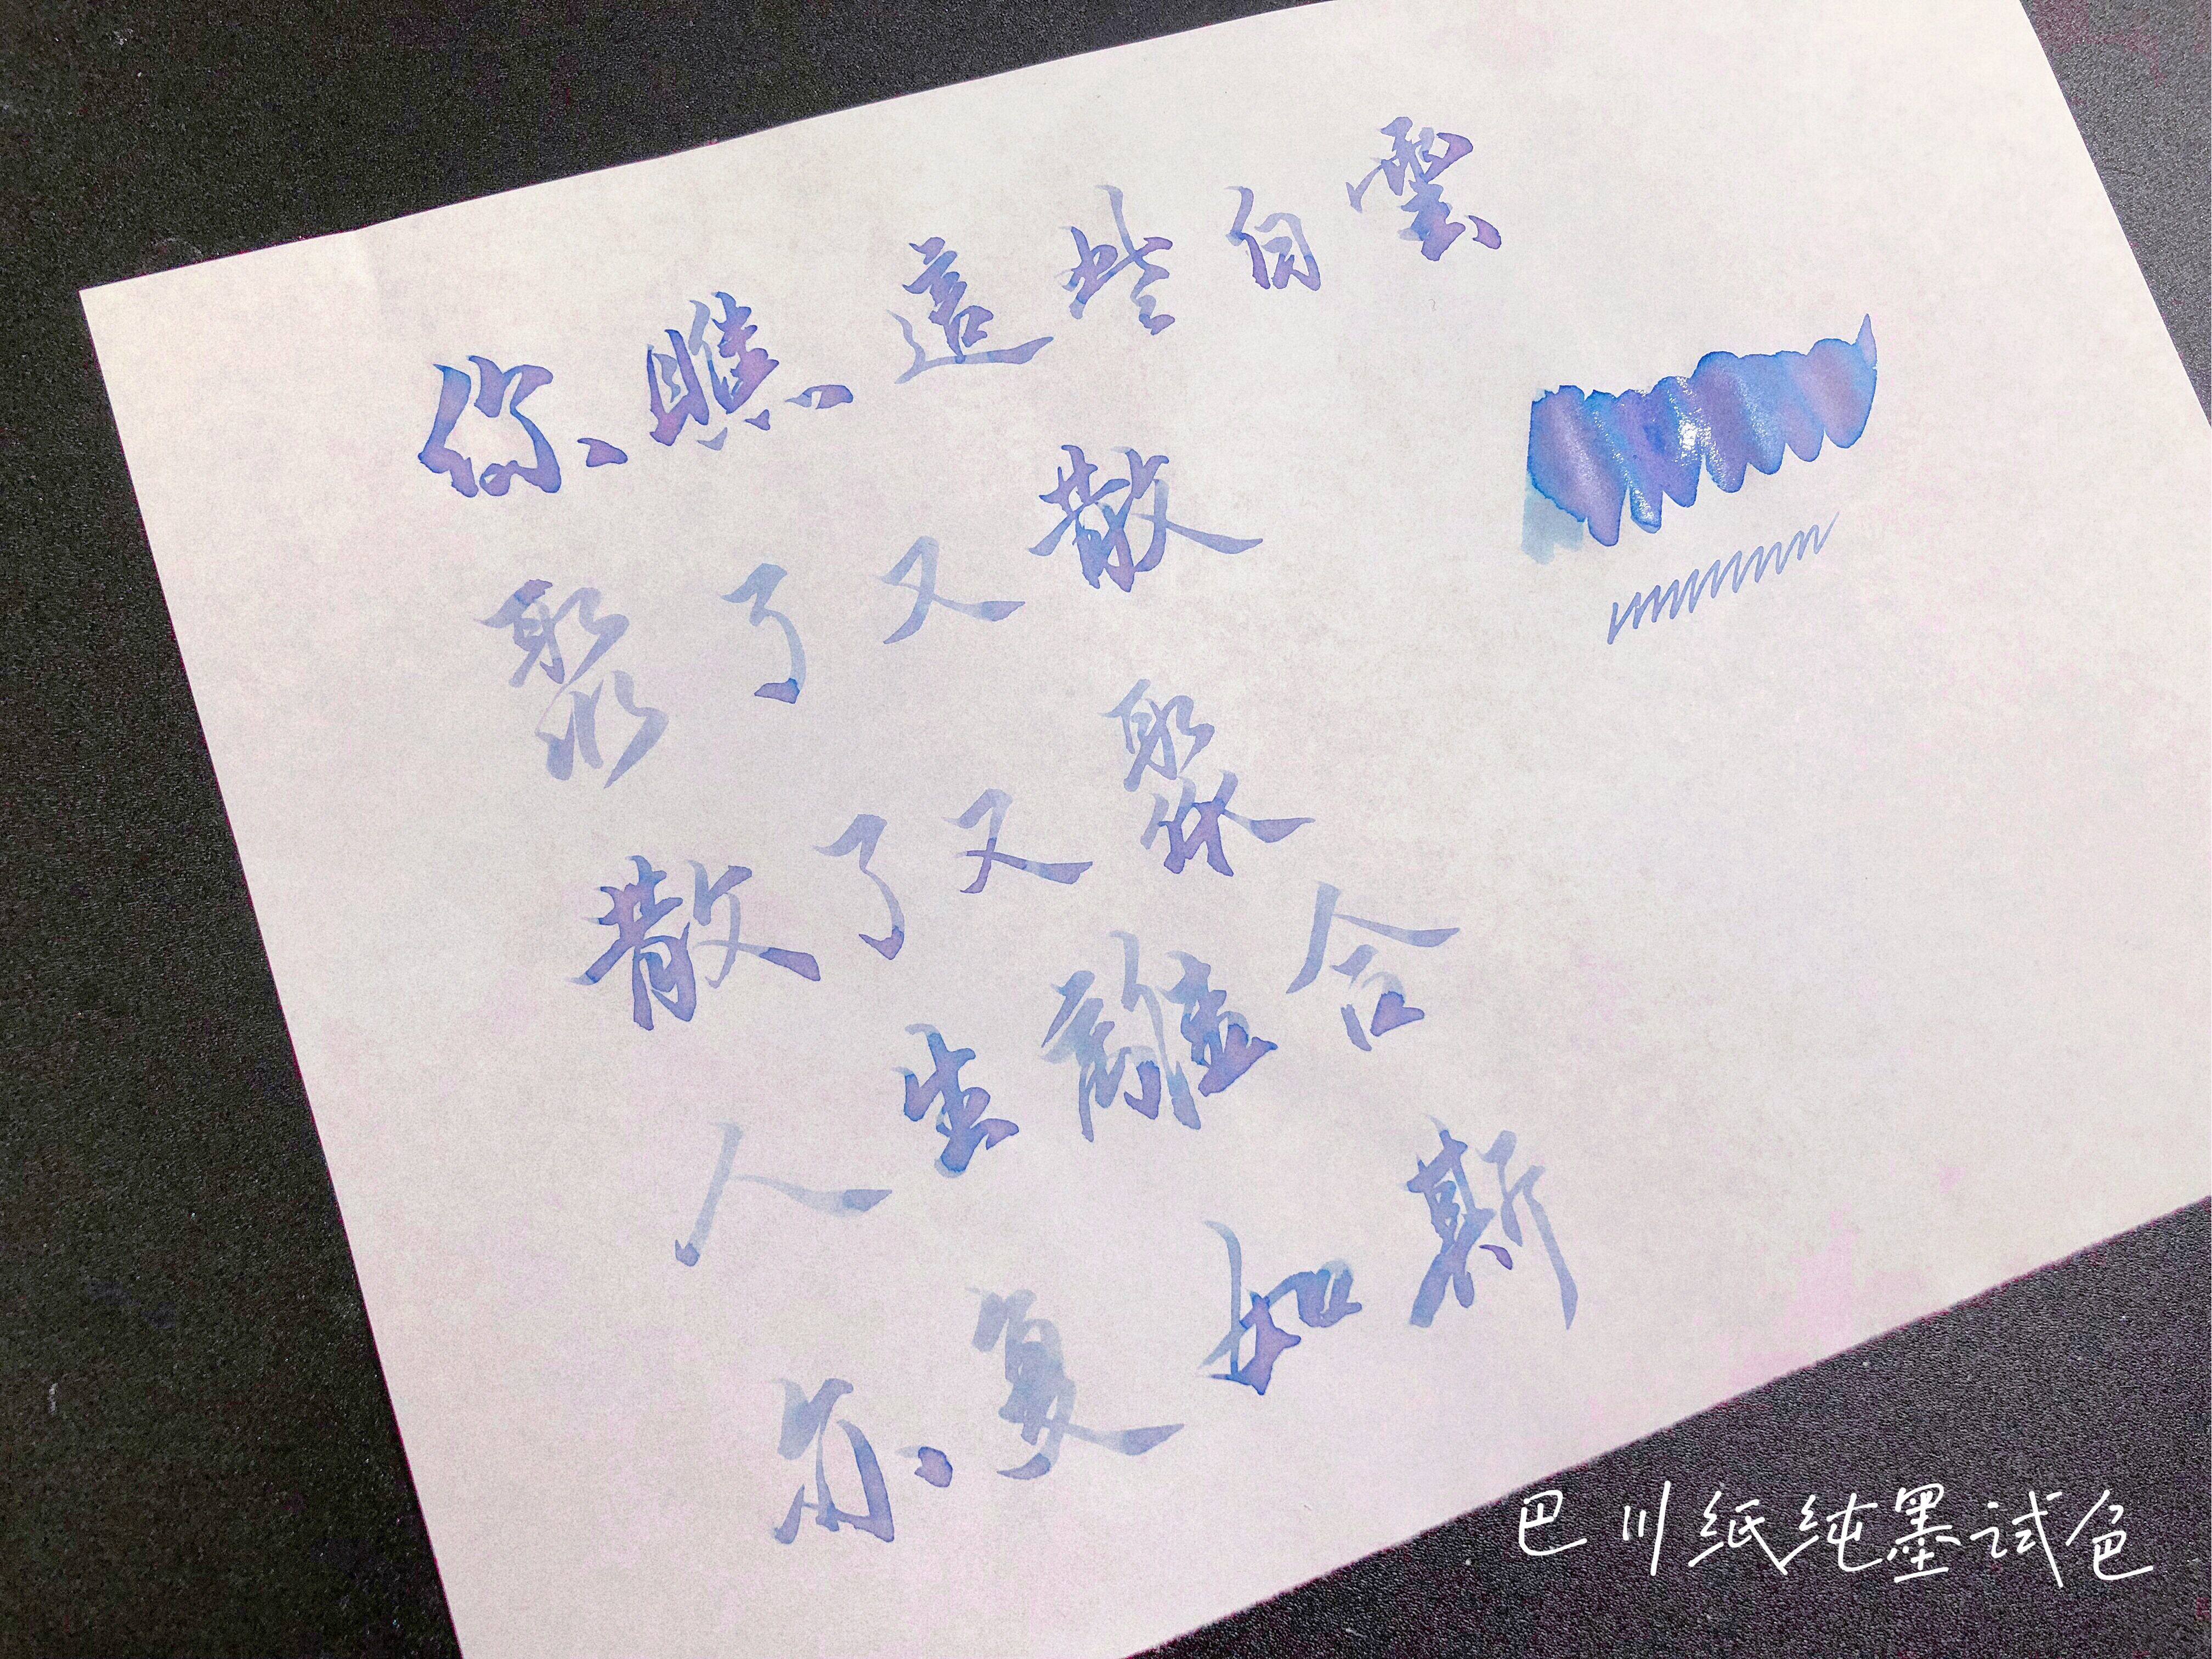 你瞧這些白雲
聚了又散
散了又聚
人生離合
亦复如斯
巴川纸纯墨试色